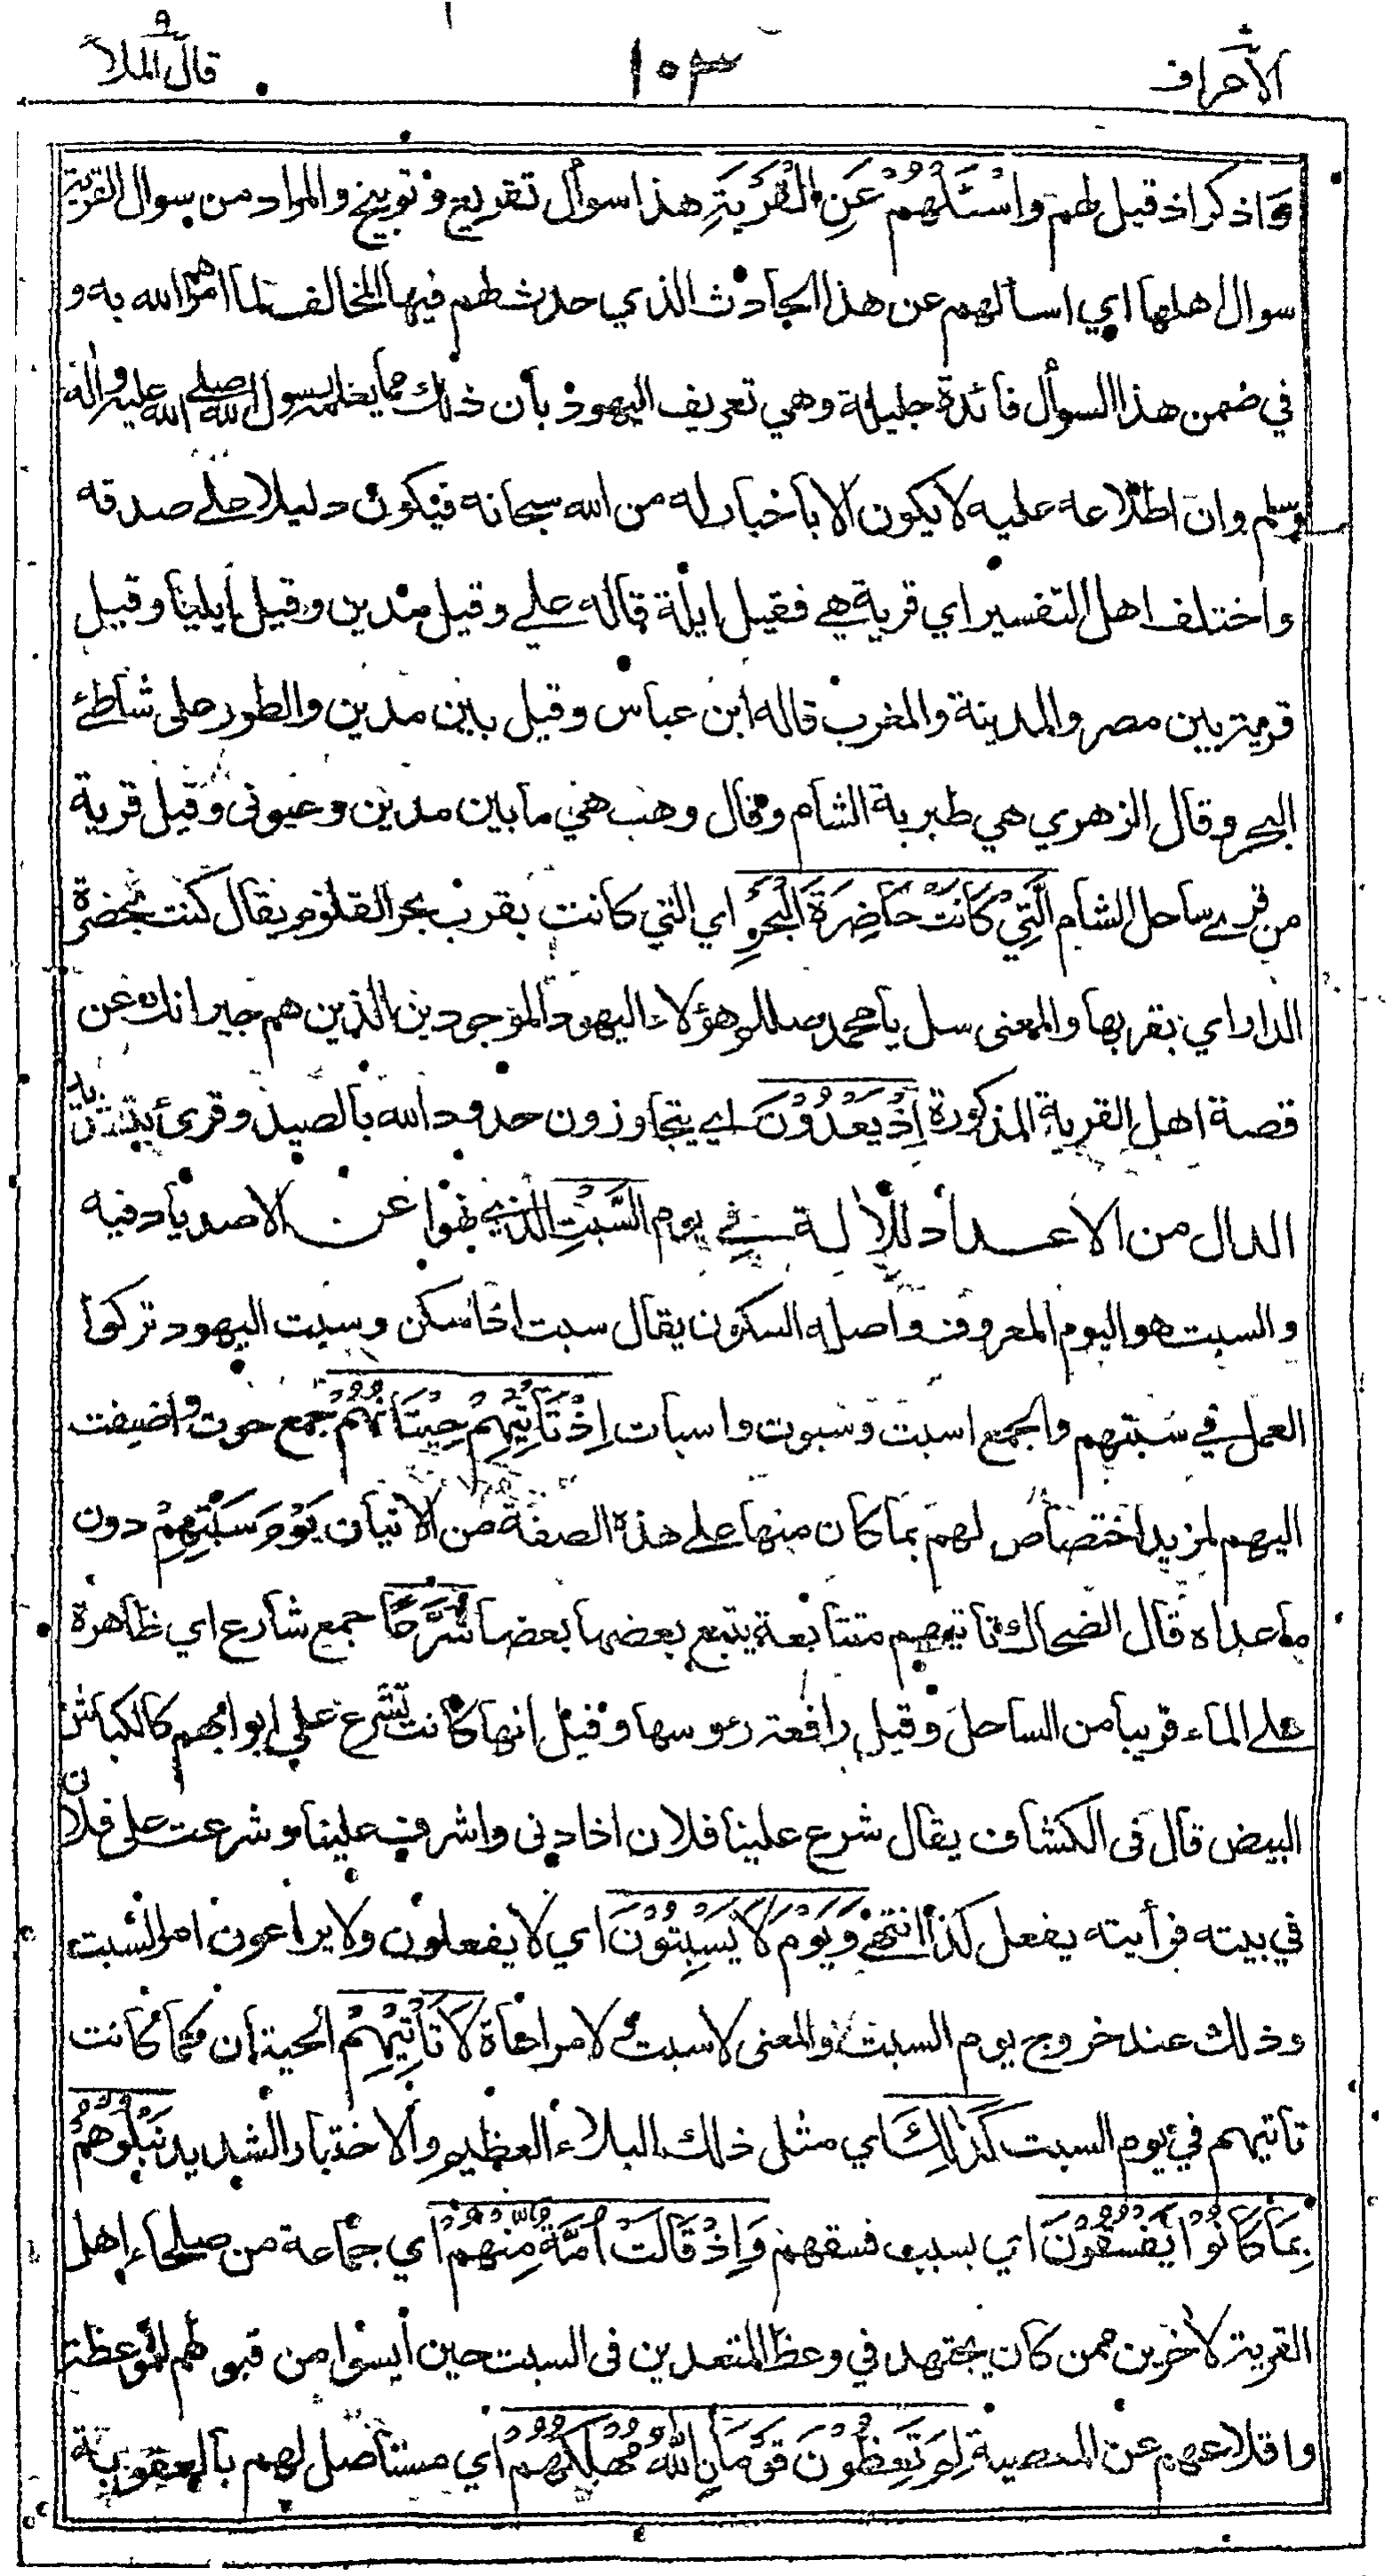 الأعراف ١٠٣ قال الملأ ٩
واذكر اذ قيل لهم وَاسْئَلْهُمْ عَنِ الْقَرْيَةِ هذا سوأل تقريع و توبيخ والمراد من سوال القرية
سوال اهلها اي اسألهم عن هذا الحادث الذي حدث لهم فيها المخالف لما امرهم الله به و
في ضمن هذا السوأل فائدة جليلة وهي تعريف اليهود بأن ذلك مما يعلمه رسول الله صلى الله عليه وأله
وسلم وان اطلاعه عليه لا يكون الا بأخبار له من الله سبحانه فيكون دليلا على صدقه
واختلف اهل التفسير اي قرية هي فقيل ايلة قاله علي وقيل مدين وقيل أيليا وقيل
قرية بين مصر والمدينة والمغرب قاله ابن عباس وقيل بين مدين والطور على شاطئ
البحر وقال الزهري هي طبرية الشام وقال وهب هي ما بين مدين وعيونى وقيل قرية
من قرى ساحل الشام الَّتِيْ كَانَتْ حَاضِرَةَ الْبَحْرِ اي التي كانت بقرب بحر القلزم يقال كنت بحضرة
الدار اي بقربها والمعنى سل يا محمد صللم هؤلاء اليهود الموجودين الذين هم جيرانك عن
قصة اهل القرية المذكورة اِذْ يَعْدُوْنَ اي يتجاوزون حدود الله بالصيد وقرئ بتشديد
الدال من الاعداد للألة في يوم السَّبْتِ الذي نهوا عن الاصدياد فيه
والسبت هو اليوم المعروف واصله السكون يقال سبت اذا سكن وسبت اليهود تركوا
العمل في سبتهم والجمع اسبت وسبوت واسبات اِذْ تَأْتِيْهِمْ حِيْتَانُهُمْ جمع حوت واضيفت
اليهم لمزيد اختصاص لهم بما كان منها على هذه الصفة من الاتيان يَوْمَ سَبْتِهِمْ دون
ما عداه قال الضحاك تاتيهم متتابعة يتبع بعضها بعضا شُرَّعًا جمع شارع اي ظاهرة
على الماء قريبا من الساحل وقيل رافعة رءوسها وقيل انها كانت تشرع على ابوابهم كالكباش
البيض قال فى الكشاف يقال شرع علينا فلان اذا دنى واشرف علينا وشرعت على فلان
في بيته فرأيته يفعل كذا انتهى وَيَوْمَ لَا يَسْبِتُوْنَ اي لا يفعلون ولا يراعون امر السبت
وذلك عند خروج يوم السبت والمعنى لا سبت ولا مراعاة لَا تَأْتِيْهِمْ الحيتان كما كانت
تأتيهم في يوم السبت كَذٰلِكَ اي مثل ذلك البلاء العظيم والاختبار الشديد نَبْلُوْهُمْ
بِمَا كَانُوْا يَفْسُقُوْنَ اي بسبب فسقهم وَاِذْ قَالَتْ اُمَّةٌ مِّنْهُمْ اي جماعة من صلحاء اهل
القرية لأخرين ممن كان يجتهد في وعظ المتعدين فى السبت حين أيسوا من قبولهم للموعظة
واقلاعهم عن المعصية لِمَ تَعِظُوْنَ قَوْمَاۨ اللّٰهُ مُهْلِكُهُمْ اي مستأصل لهم بالعقوبة